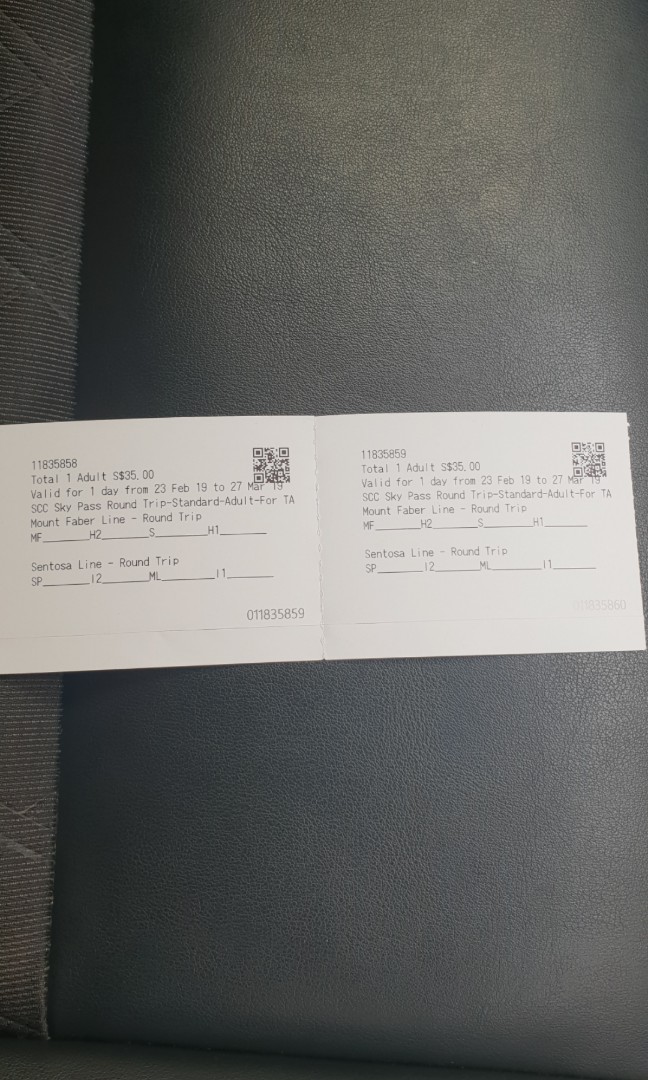 11835858
Total 1 Adult S$35.00
Valid for 1 day from 23 Feb 19 to 27 Mar 19
SCC Sky Pass Round Trip-Standard-Adult-For TA
Mount Faber Line - Round Trip
MF______H2______S_______H1______
Sentosa Line - Round Trip
SP______I2______ML_______I1______
011835859
11835859
Total 1 Adult S$35.00
Valid for 1 day from 23 Feb 19 to 27 Mar 19
SCC Sky Pass Round Trip-Standard-Adult-For TA
Mount Faber Line - Round Trip
MF______H2______S_______H1______
Sentosa Line - Round Trip
SP______I2______ML_______I1______
011835860